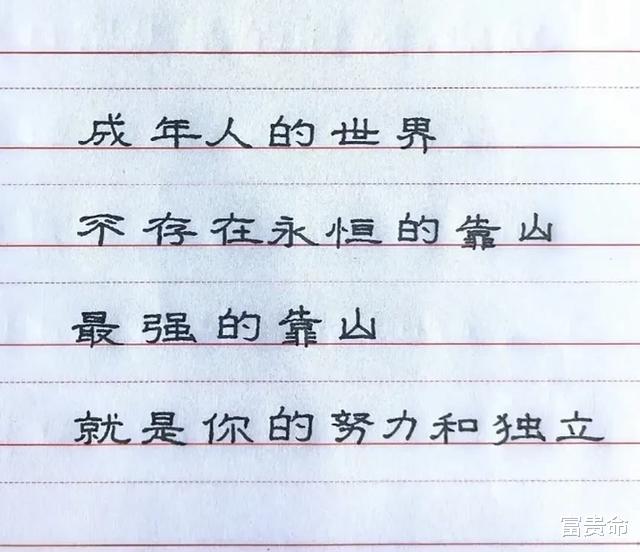 成年人的世界
不存在永恒的靠山
最强的靠山
就是你的努力和独立
富贵命